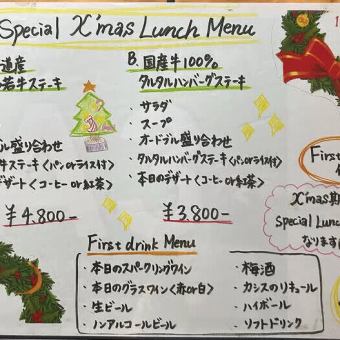 Special X'mas Lunch Menu
道産
若牛ステーキ
ブル盛り合わせ
牛ステーキ〈パンorライス付〉
デザート〈コーヒーor紅茶〉
¥4.800-
B. 国産牛100%
タルタルハンバーグステーキ
・サラダ
・スープ
・オードブル盛り合わせ
・タルタルハンバーグステーキ〈パンorライス付〉
・本日のデザート〈コーヒーor紅茶〉
¥3.800-
First
X'mas期
Special Lunch
なります
First drink Menu
・本日のスパークリングワイン
・本日のグラスワイン〈赤or白〉
・生ビール
・ノンアルコールビール
・梅酒
・カシスのリキュール
・ハイボール
・ソフトドリンク